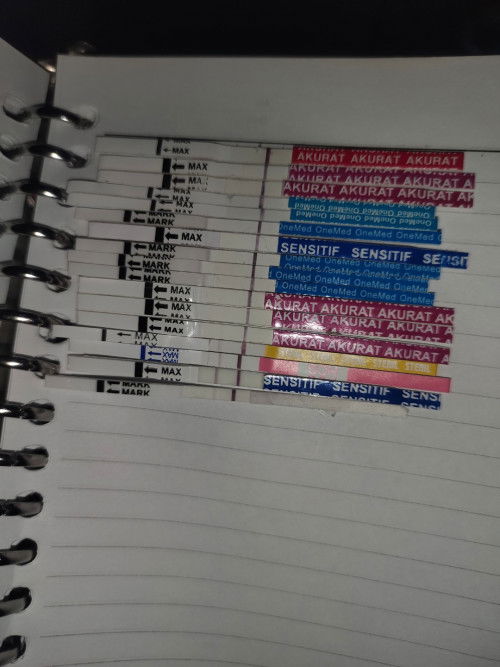 MAX AKURAT AKURAT AKURAT
MAX AKURAT AKURAT AKURAT A
MAX AKURAT AKURAT AKURAT AK
MAX OneMed OneMed OneMed
MARK OneMed OneMed OneMed
MAX OneMed OneMed OneMed OneMed
MARK SENSITIF SENSITIF SENSIT
MARK OneMed OneMed OneMed OneMed
MARK OneMed OneMed OneMed OneMed
MAX OneMed OneMed OneMed OneMed
MAX AKURAT AKURAT AKURAT AKURAT
MAX AKURAT AKURAT AKURAT A
MAX AKURAT AKURAT AKURAT A
MAX
MAX SENSITIF SENSITIF SENS
MARK SENSITIF SENSITIF SENS
MARK